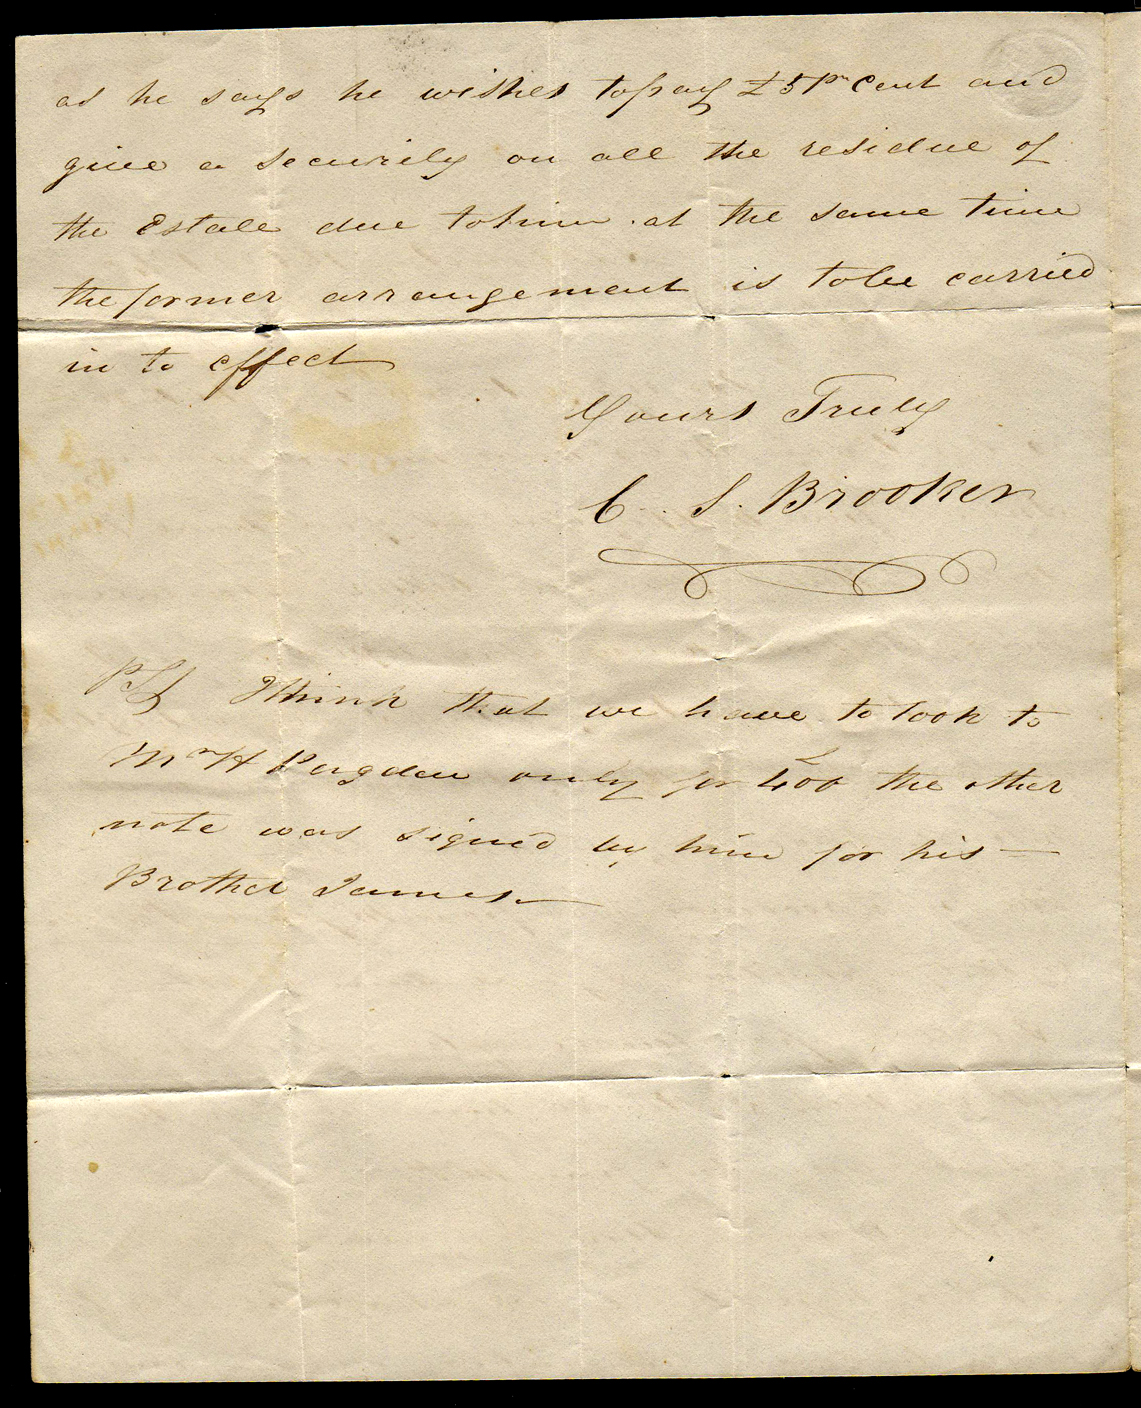 as he says he wishes to pay £5 pr Cent and
give a security on all the residue of
the Estate due to him . at the same time
the former arrangement is to be carried
in to effect
Yours Truly
C. S. Brooker
PS I think that we have to look to
Mr H Pagden only for £400 the other
note was signed by him for his —
Brother James —